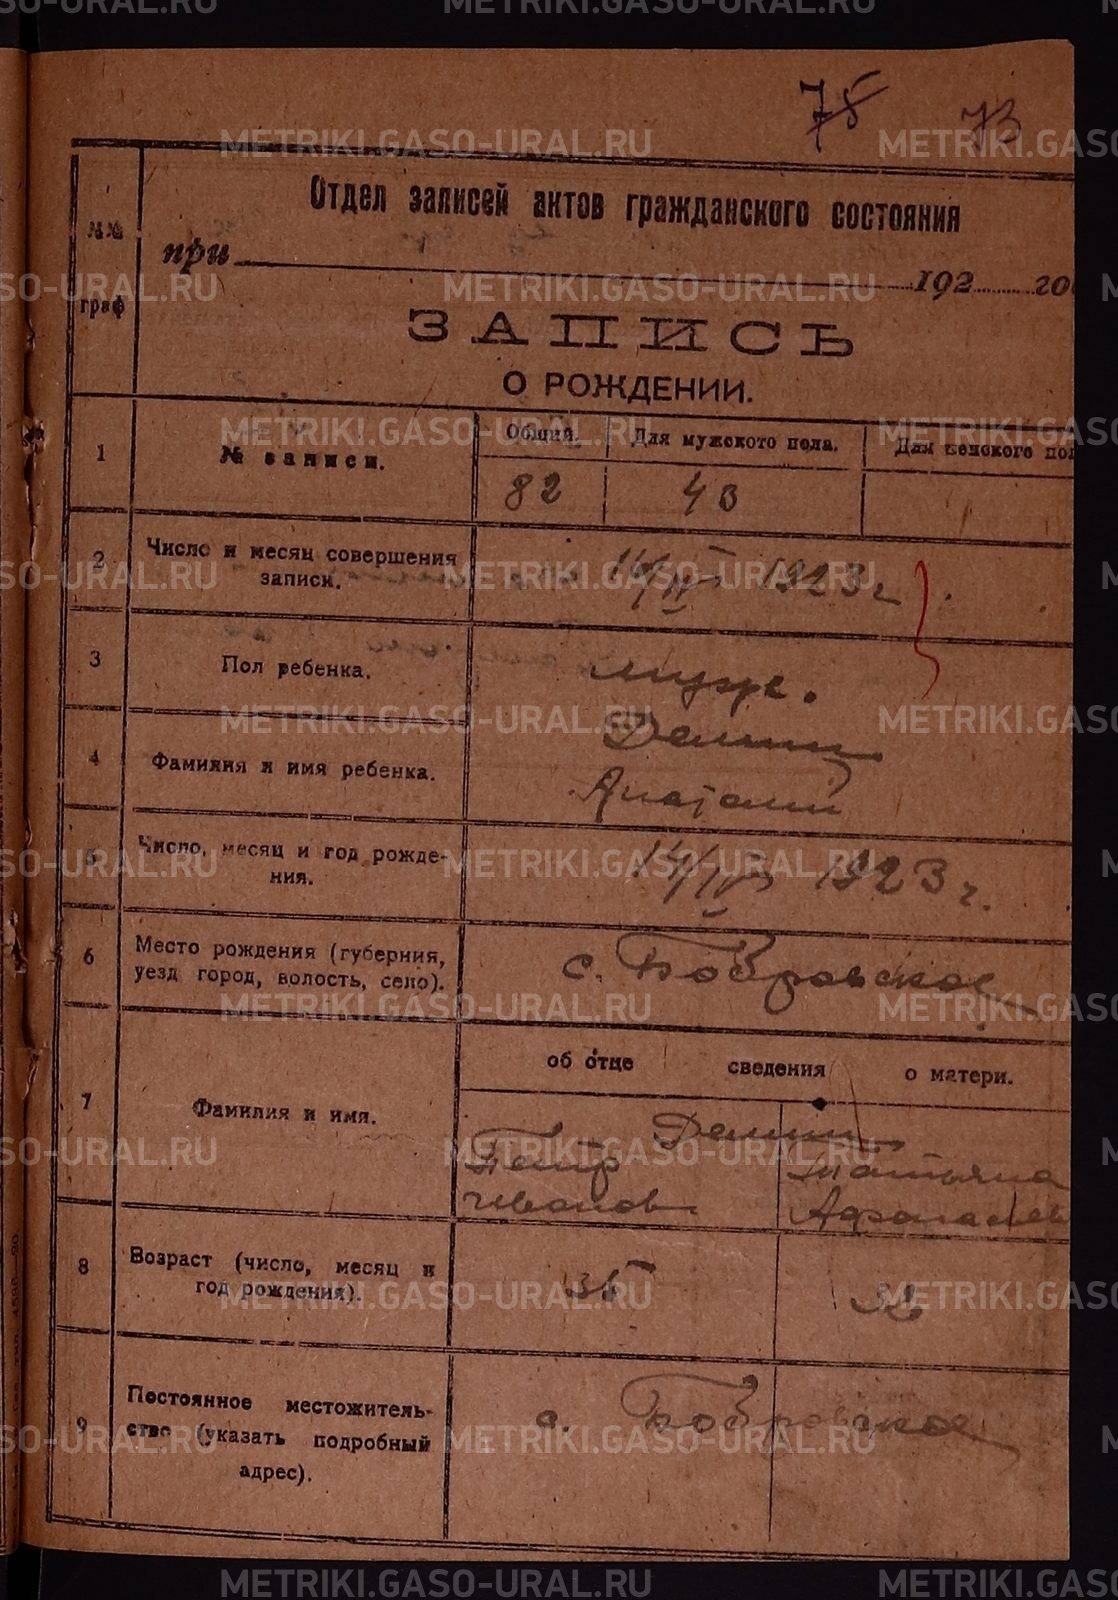 75 73
Отдел записей актов гражданского состояния
№№ граф
при 192 го
ЗАПИСЬ
О РОЖДЕНИИ.
1 № записи. Общий. Для мужского пола. Для женского пол
82 43
2 Число и месяц совершения записи. 16/IV 1923 г
3 Пол ребенка. муж.
4 Фамилия и имя ребенка. Демин
Анатолий
5 Число, месяц и год рожде-
ния. 14/IV 1923 г.
6 Место рождения (губерния,
уезд город, волость, село). с. Бобровское
об отце сведения о матери.
7 Фамилия и имя. Демин
Петр Татьяна
Иванов. Афанасьев
8 Возраст (число, месяц и
год рождения). 35 32
9 Постоянное местожитель-
ство (указать подробный
адрес). с. Бобровское
METRIKI.GASO-URAL.RU